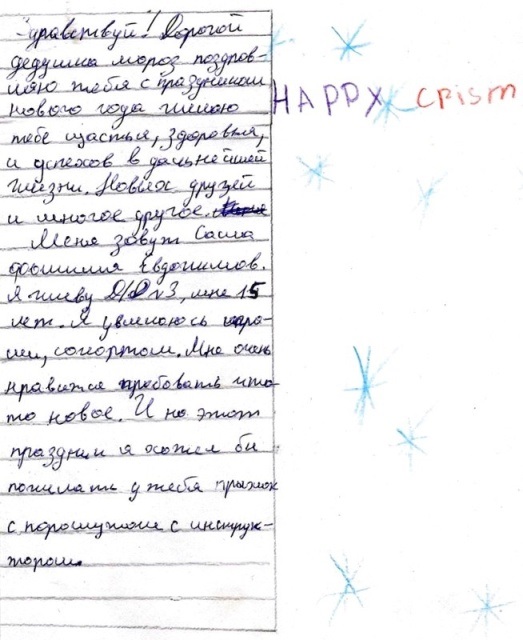 Здравствуй! Дорогой
дедушка мороз поздров-
ляю тебя с праздником
нового года желаю
тебе щастья, здоровья,
и успехов в дальнейшей
жизни. Новых друзей
и многое другое.
Меня зовут Саша
фамилия Евдокимов.
Я живу Д/Д №3, мне 15
лет. Я увлекаюсь игра-
ми, спортом. Мне очень
нравится пребовать что-
то новое. И на этот
праздник я хотел бы
пожилать у тебя прыжок
с парашутом с инструк-
тором.
HAPPY CRISM